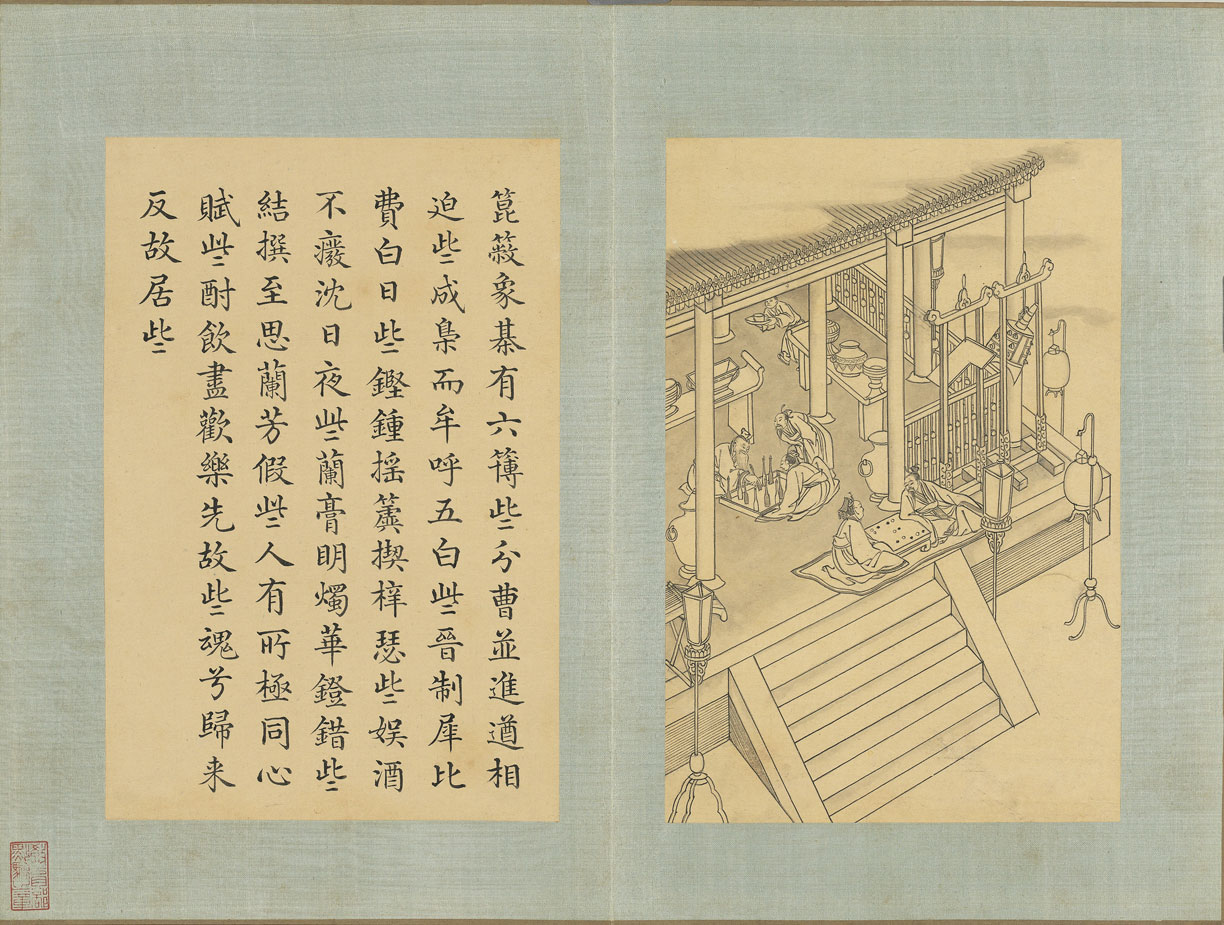 箟蔽象棊有六簿些分曹並進遒相
迫些成梟而牟呼五白些晉制犀比
費白日些鏗鍾揺簴揳梓瑟些娛酒
不廢沈日夜些蘭膏明燭華鐙錯些
結撰至思蘭芳假些人有所極同心
賦些酎飲盡歡樂先故些魂兮歸来
反故居些